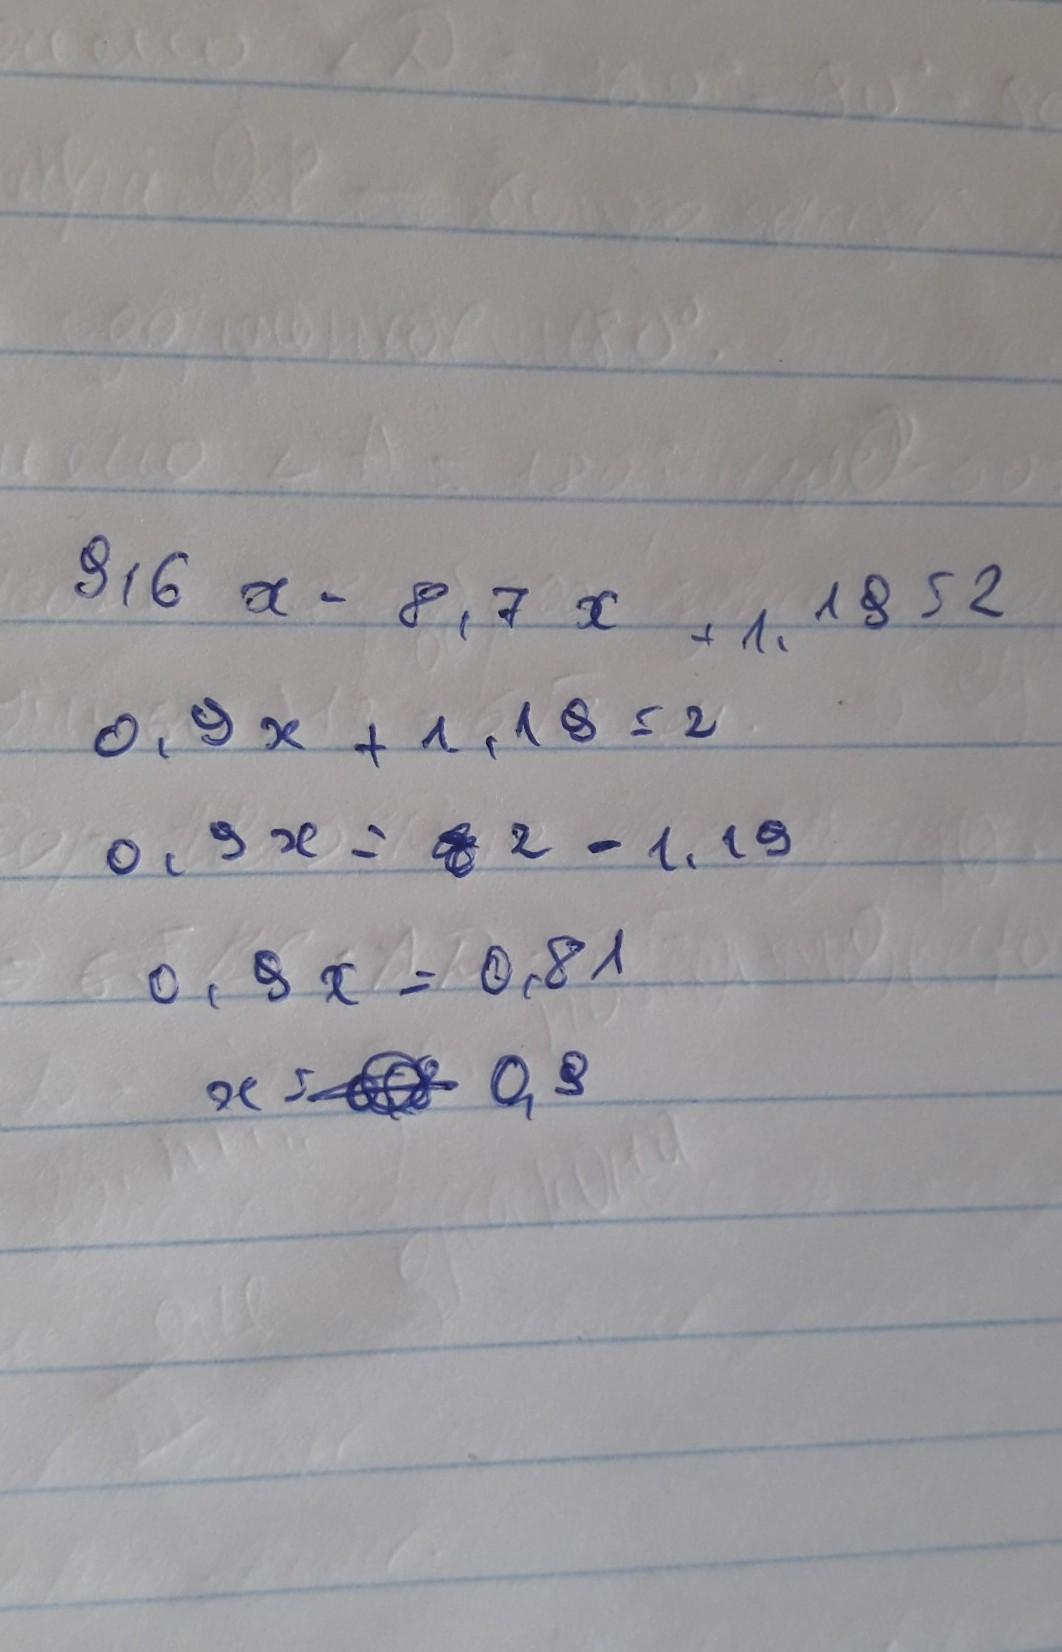 9,6 x - 8,7 x + 1,19 = 2
0,9x + 1,19 = 2
0,9x = 2 - 1,19
0,9x = 0,81
x = 0,9